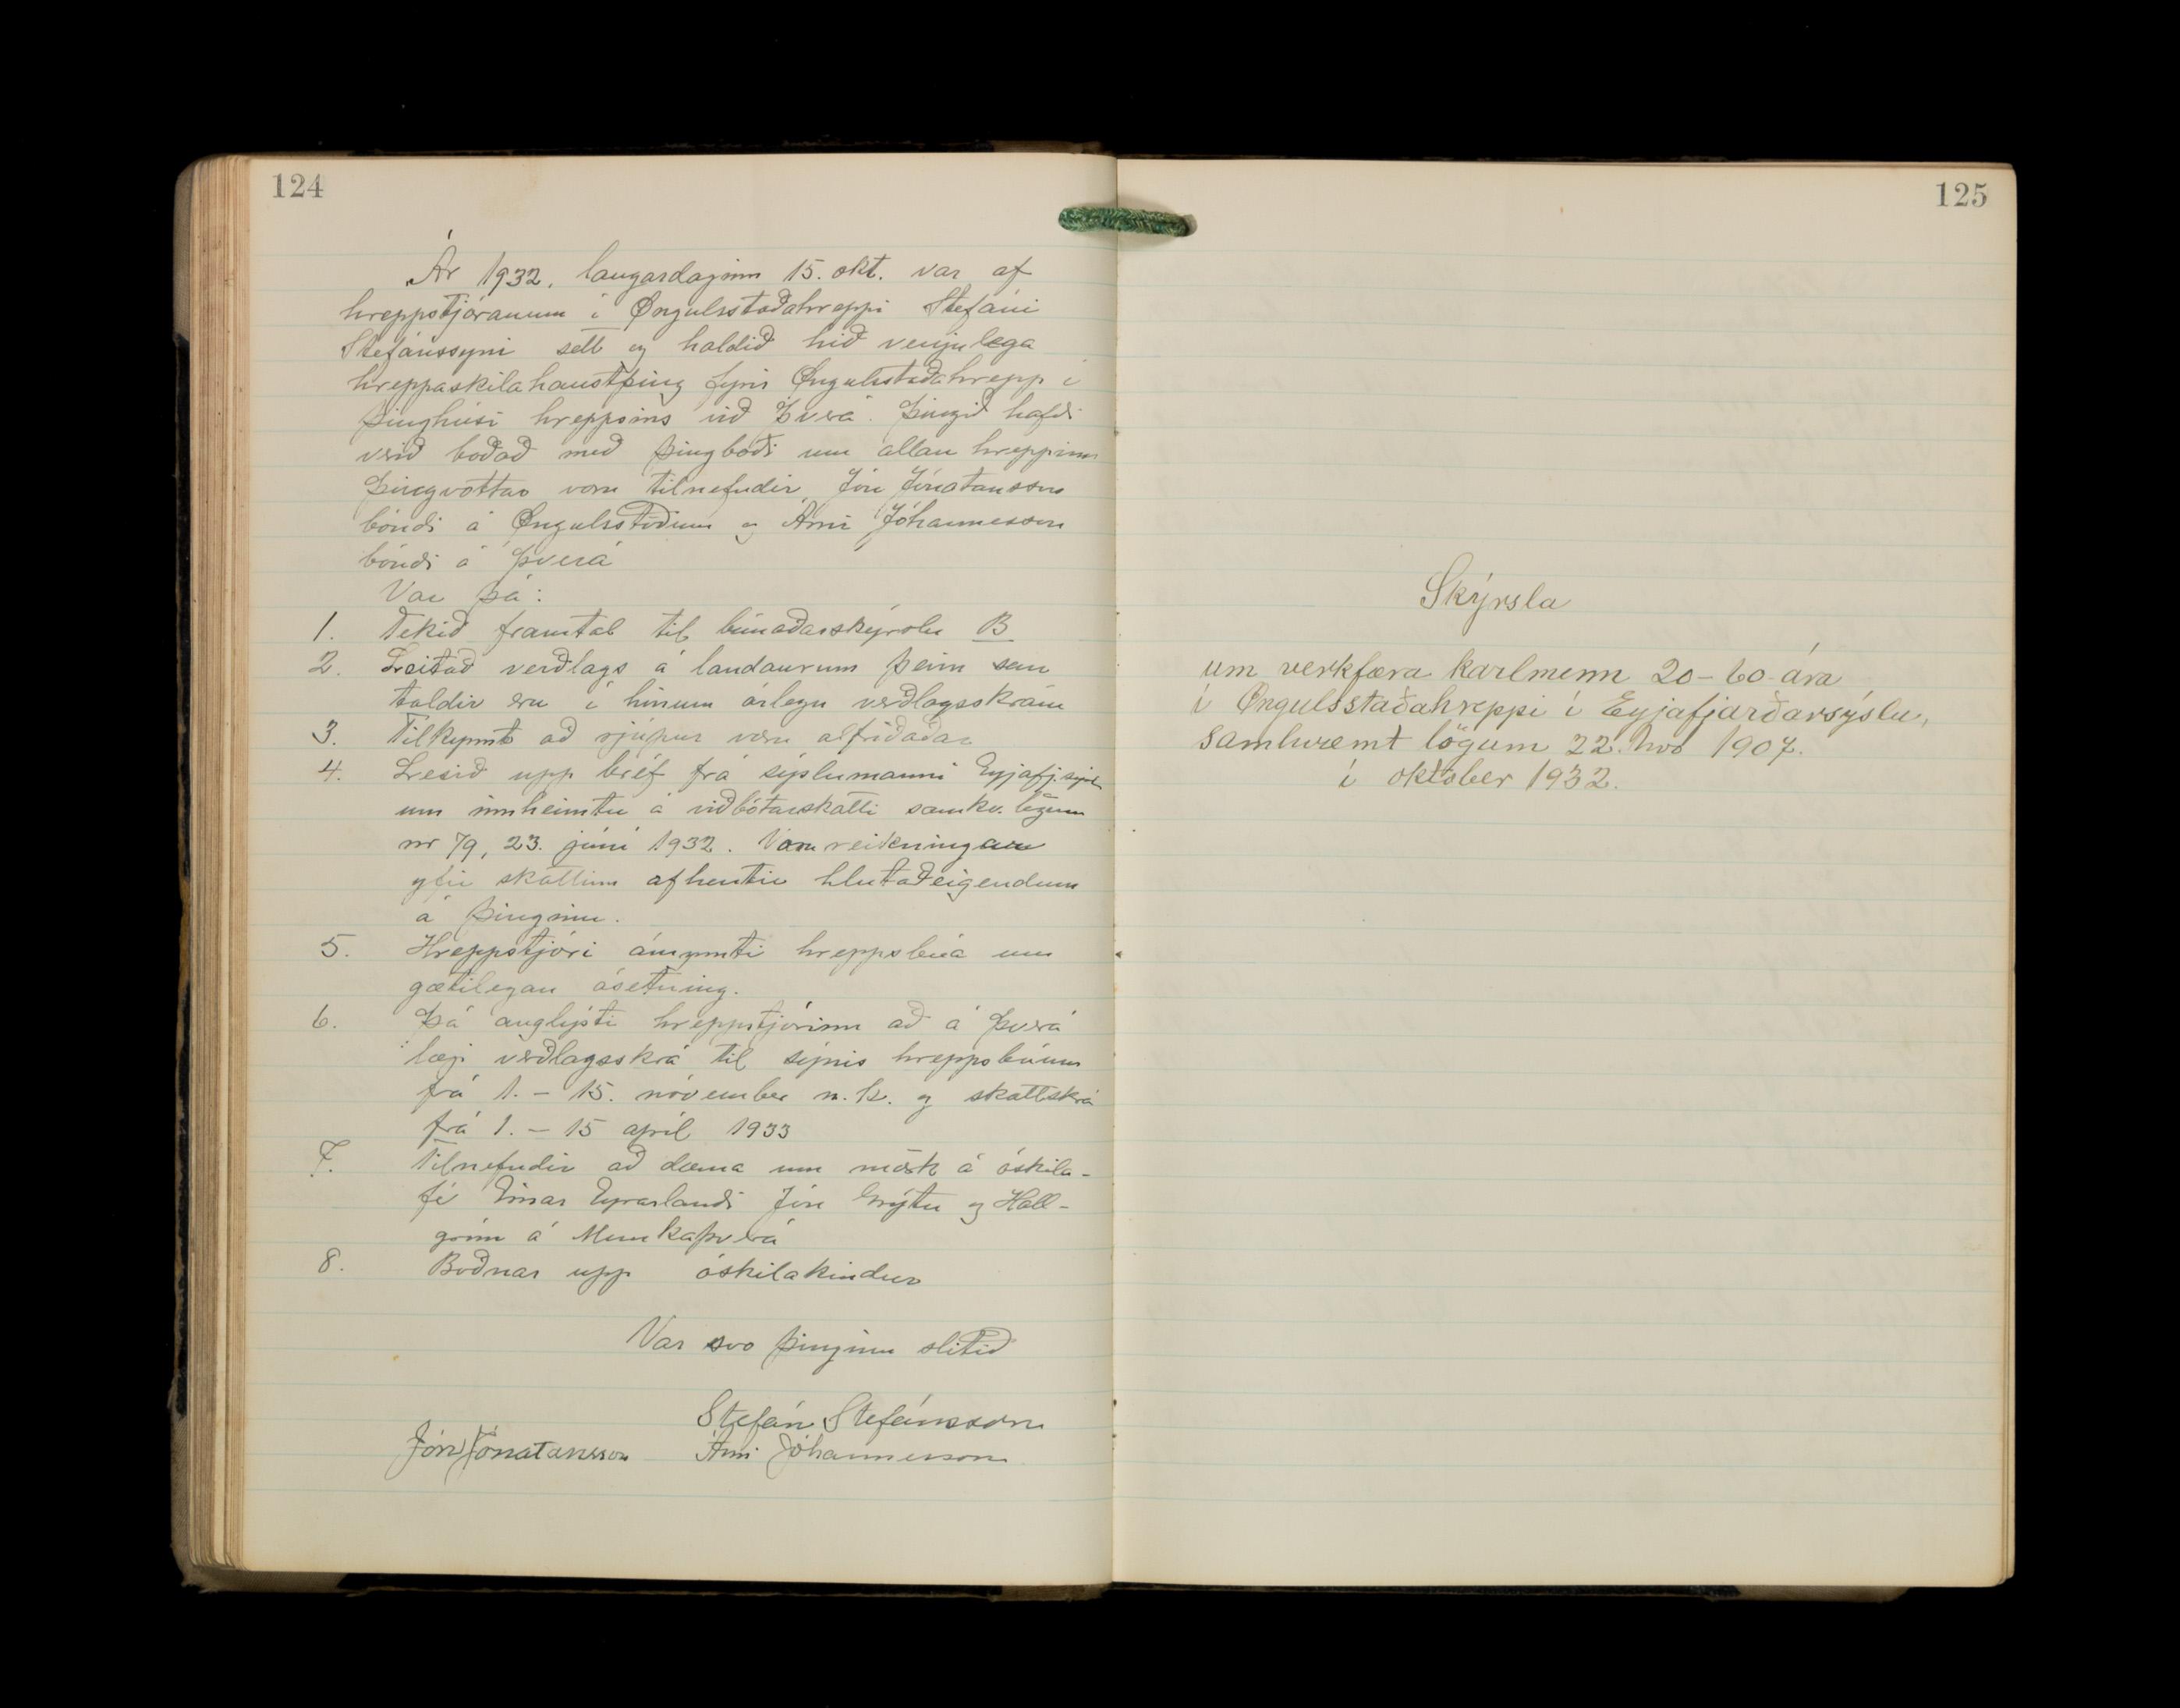 124
Ár 1932, laugardaginn 15. okt. var af
hreppstjóranum í Öngulsstaðahreppi Stefáni
Stefánssyni sett og haldið hið venjulega
hreppaskilahaustþing fyrir Öngulsstaðahrepp í
þinghúsi hreppsins við Þverá. Þingið hafði
verið boðað með þingboði um allan hreppinn
Þingvottar voru tilnefndir Jón Jónatansson
bóndi á Öngulsstöðum og Árni Jóhannesson
bóndi á Þverá
Var þá:
1. Tekið framtal til búnaðarskýrslu B
2. Leitað verðlags á landaurum þeim sem
taldir eru í hinum árlegu verðlagsskrám
3. Tilkynnt að rjúpur væru alfriðaðar
4. Lesið upp bréf frá sýslumanni Eyjafj.sýslu
um innheimtu á viðbótarskatti samkv. lögum
nr 79, 23. júní 1932. Voru reikningar
yfir skattinn afhentir hlutaðeigendum
á þinginu.
5. Hreppstjóri áminnti hreppsbúa um
gætilegan ásetning.
6. Þá auglýsti hreppstjórinn að á Þverá
lægi verðlagsskrá til sýnis hreppsbúum
frá 1. - 15. nóvember n.k. og skattskrá
frá 1. - 15 apríl 1933
7. Tilnefndir að dæma um mörk á óskila-
fé Einar Eyrarlandi Jón Grýtu og Hall-
grím á Munkaþverá
8. Boðnar upp óskilakindur
Var svo þinginu slitið
Stefán Stefánsson
Jón Jónatansson Árni Jóhannesson
125
Skýrsla
um verkfæra karlmenn 20-60 ára
í Öngulsstaðahreppi í Eyjafjarðarsýslu,
samkvæmt lögum 22. nóv 1907.
í október 1932.